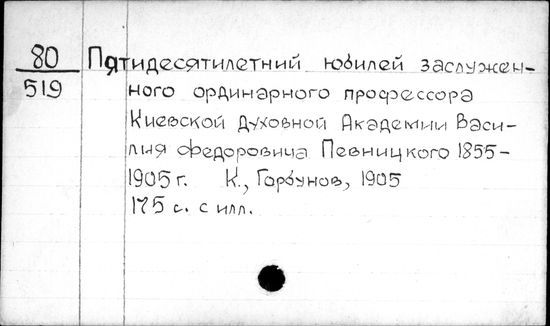 80 Пятидесятилетний юбилей заслужен-
519 ного ординарного профессора
Киевской Духовной Академии Васи-
лия Федоровича Певницкого 1855-
1905 г. К., Горбунов, 1905
175 с. с илл.